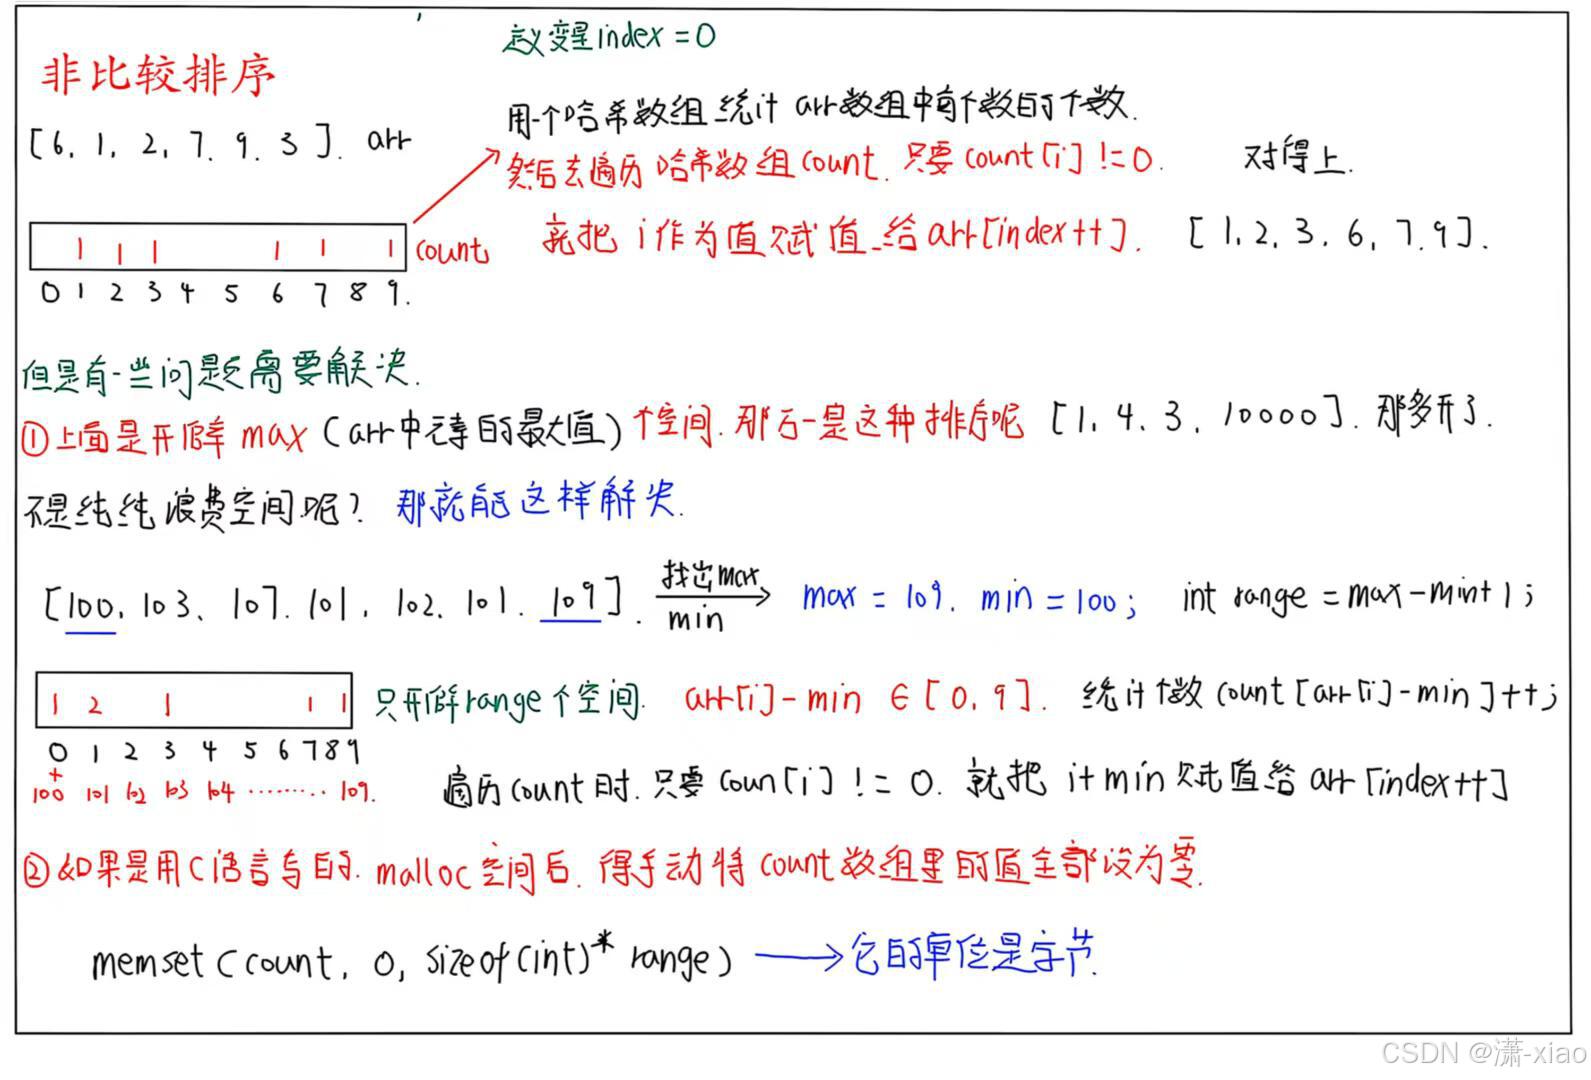 定义变量index=0
非比较排序
[6, 1, 2, 7, 9, 3]. arr
用个哈希数组统计 arr数组中每个数的个数.
然后去遍历哈希数组count. 只要count[i]!=0.
对得上.
就把 i作为值赋值给arr[index++]. [1,2,3,6,7,9].
1 1 1 1 1 1 count
0 1 2 3 4 5 6 7 8 9.
但是有一些问题需要解决.
①上面是开辟 max (arr中元素的最大值) 个空间. 那万一是这种排序呢 [1, 4, 3, 10000]. 那多开了
不是纯纯浪费空间呢? 那就能这样解决.
[100, 103, 107, 101, 102, 101, 109]. 找出max min max = 109. min = 100; int range = max-min+1;
1 2 1 1 1 只开辟range个空间. arr[i]-min ∈ [0, 9]. 统计个数 count[arr[i]-min]++;
0 1 2 3 4 5 6 7 8 9
+
100 101 102 103 104 ········· 109.
遍历count时. 只要 coun[i] != 0. 就把 i+min 赋值给 arr[index++]
②如果是用C语言写的. malloc空间后. 得手动将 count数组里的值全部设为零.
memset(count, 0, sizeof(int)* range) → 它的单位是字节.
CSDN @潇-xiao